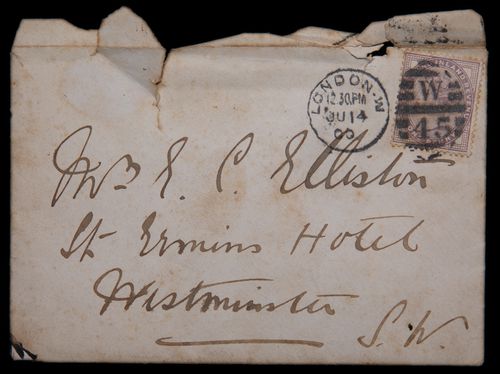 LONDON·W
12.30.PM
JU 14
00
W
45
Mrs E. C. Elliston
St Ermins Hotel
Westminster
S.W.